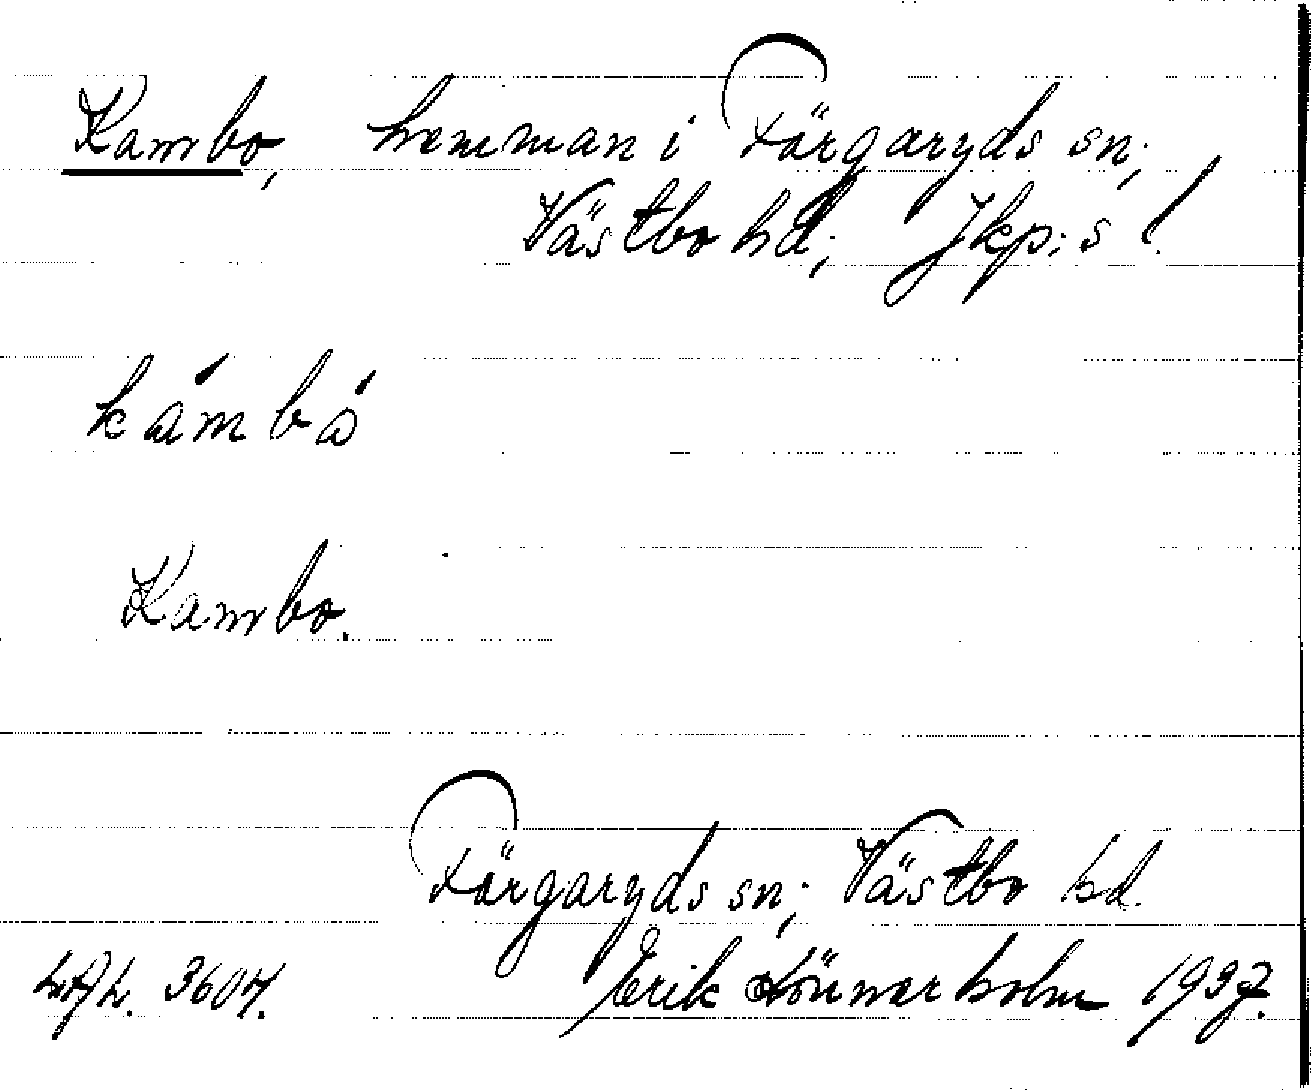 Kambo, hemman i Färgaryds sn;
Västbo hd; Jkp:s l.
kámbó
Kambo.
Färgaryds sn; Västbo hd.
LAL. 3607. Erik Lönnerholm 1937.